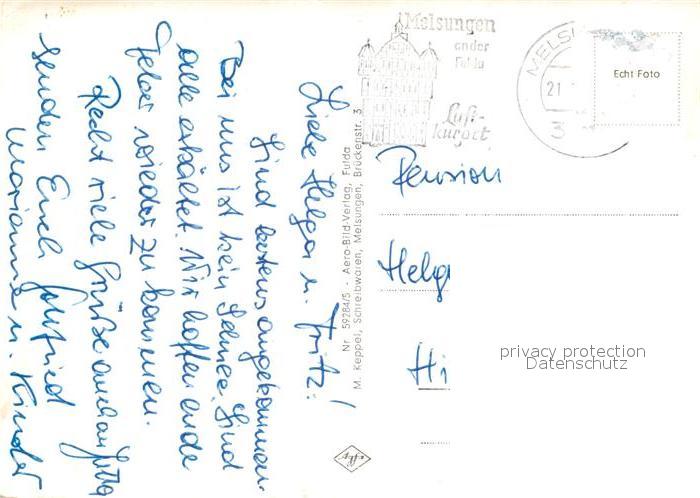 Liebe Helga u. Fritz!
Sind bestens angekommen.
Bei uns ist kein Schnee. Sind
alle erkältet. Wir hoffen ende
Feber wieder zu kommen.
Recht viele Grüße auch an Jutta
senden Euch Gottfried
Marianne u. Kinder
Nr. 59284/5 - Aero-Bild-Verlag, Fulda
M. Keppel, Schreibwaren, Melsungen, Brückenstr. 3
Agfa
Melsungen
an der
Fulda
Luft-
kurort
MELSU
21
3
Echt Foto
Pension
Helg
Hi
privacy protection
Datenschutz